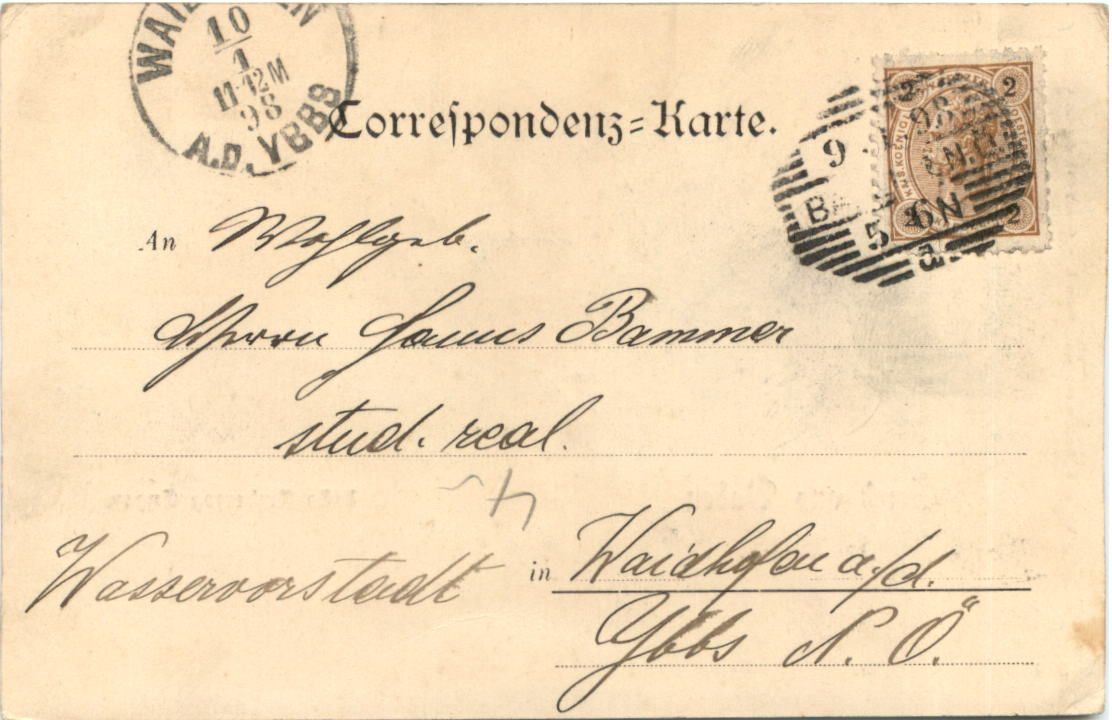 WAI
EN
10
1
11-12M
98
A.D. YBBS
Correspondenz=Karte.
2 2
2
9
BA
5-6N
An Wohlgeb.
Herrn Hanns Bammer
stud. real.
Wasservorstadt in Waidhofen a./d.
Ybbs N. Ö.